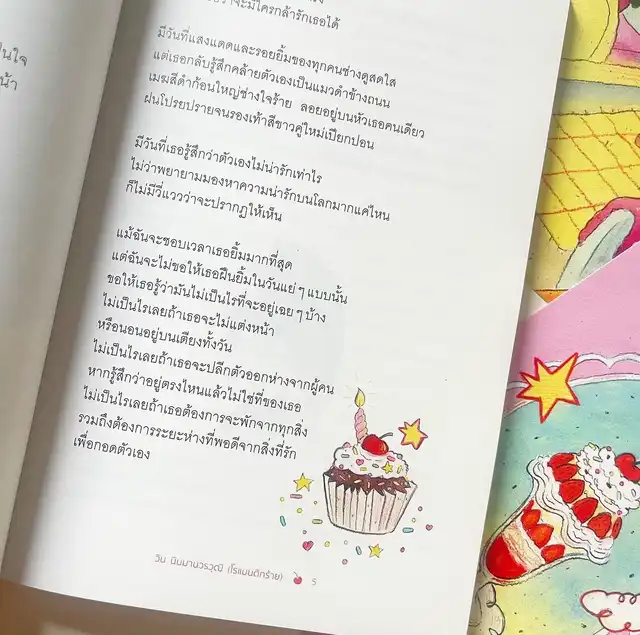 ป็นใจ
น้า
ว่าจะมีใครกล้ารักเธอได้
มีวันที่แสงแดดและรอยยิ้มของทุกคนช่างดูสดใส
แต่เธอกลับรู้สึกคล้ายตัวเองเป็นแมวดำข้างถนน
เมฆสีดำก้อนใหญ่ช่างใจร้าย ลอยอยู่บนหัวเธอคนเดียว
ฝนโปรยปรายจนรองเท้าสีขาวคู่ใหม่เปียกปอน
มีวันที่เธอรู้สึกว่าตัวเองไม่น่ารักเท่าไร
ไม่ว่าพยายามมองหาความน่ารักบนโลกมากแค่ไหน
ก็ไม่มีวี่แววว่าจะปรากฏให้เห็น
แม้ฉันจะชอบเวลาเธอยิ้มมากที่สุด
แต่ฉันจะไม่ขอให้เธอฝืนยิ้มในวันแย่ๆ แบบนั้น
ขอให้เธอรู้ว่ามันไม่เป็นไรที่จะอยู่เฉยๆ บ้าง
ไม่เป็นไรเลยถ้าเธอจะไม่แต่งหน้า
หรือนอนอยู่บนเตียงทั้งวัน
ไม่เป็นไรเลยถ้าเธอจะปลีกตัวออกห่างจากผู้คน
หากรู้สึกว่าอยู่ตรงไหนแล้วไม่ใช่ที่ของเธอ
ไม่เป็นไรเลยถ้าเธอต้องการจะพักจากทุกสิ่ง
รวมถึงต้องการระยะห่างที่พอดีจากสิ่งที่รัก
เพื่อกอดตัวเอง
วิน นิมมานวรวุฒิ (โรแมนติกร้าย) 5